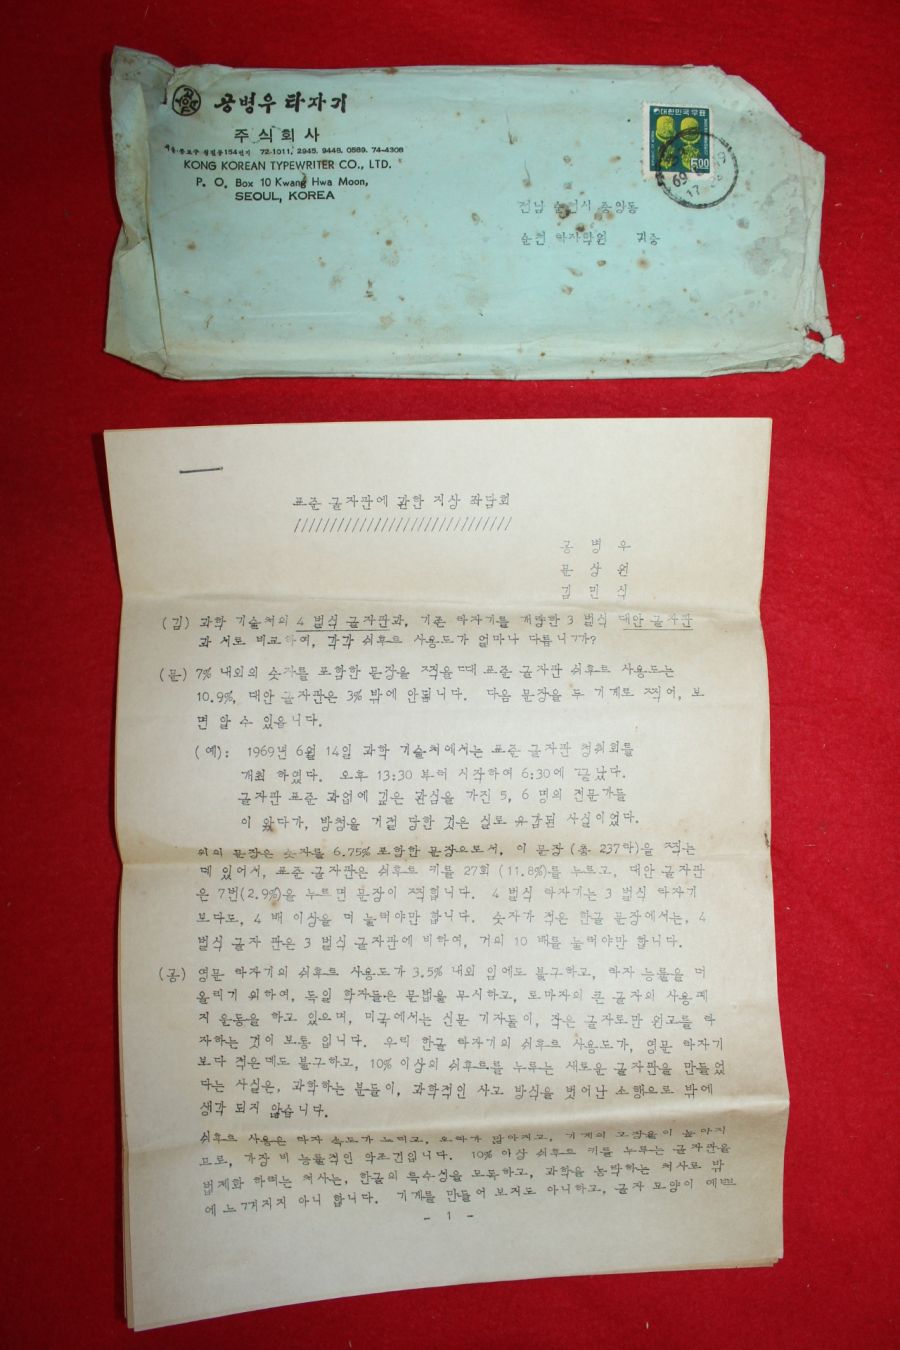 공병우 타자기
주식회사
서울·종로구 154번지 72-1011, 2945, 9448, 0589, 74-4308
KONG KOREAN TYPEWRITER CO., LTD.
P. O. Box 10 Kwang Hwa Moon,
SEOUL, KOREA
대한민국우표
5.00
69
17
전남 순천시 중앙동
순천 타자학원 귀중
표준 글자판에 관한 지상 좌담회
///////////////////////////////
공 병 우
문 상 원
김 민 식
(김) 과학 기술처의 4 벌식 글자판과, 기존 타자기를 개량한 3 벌식 대안 글자판
과 서로 비교하여, 각각 쉬후트 사용도가 얼마나 다릅니까?
(문) 7% 내외의 숫자를 포함한 문장을 찍을 때 표준 글자판 쉬후트 사용도는
10.9%, 대안 글자판은 3% 밖에 안됩니다. 다음 문장을 두 기계로 찍어, 보
면 알 수 있읍니다.
(예): 1969년 6월 14일 과학 기술처에서는 표준 글자판 청취회를
개최 하였다. 오후 13:30 부터 시작하여 6:30에 끝났다.
글자판 표준 과업에 깊은 관심을 가진 5, 6 명의 전문가들
이 왔다가, 방청을 거절 당한 것은 실로 유감된 사실이었다.
위의 문장은 숫자를 6.75% 포함한 문장으로서, 이 문장 (총 237타)을 찍는
데 있어서, 표준 글자판은 쉬후트 키를 27회 (11.8%)를 누르고, 대안 글자판
은 7번(2.9%)을 누르면 문장이 찍힙니다. 4 벌식 타자기는 3 벌식 타자기
보다도, 4 배 이상을 더 눌러야만 합니다. 숫자가 적은 한글 문장에서는, 4
벌식 글자 판은 3 벌식 글자판에 비하여, 거의 10 배를 눌러야만 합니다.
(공) 영문 타자기의 쉬후트 사용도가 3.5% 내외 임에도 불구하고, 타자 능률을 더
올리기 위하여, 독일 학자들은 문법을 무시하고, 로마자의 큰 글자의 사용 폐
지 운동을 하고 있으며, 미국에서는 신문 기자들이, 작은 글자로만 원고를 타
자하는 것이 보통 입니다. 우리 한글 타자기의 쉬후트 사용도가, 영문 타자기
보다 적은데도 불구하고, 10% 이상의 쉬후트를 누루는 새로운 글자판을 만들었
다는 사실은, 과학하는 분들이, 과학적인 사고 방식을 벗어난 소행으로 밖에
생각 되지 않습니다.
쉬후트 사용은 타자 속도가 느리고, 오타가 많아지고, 기계의 고장율이 높아지
므로, 가장 비 능률적인 악조건입니다. 10% 이상 쉬후트 키를 누루는 글자판을
법제화 하려는 처사는, 한글의 특수성을 모독하고, 과학을 농락하는 처사로 밖
에 느껴지지 아니 합니다. 기계를 만들어 보지도 아니하고, 글자 모양이 예쁘
- 1 -